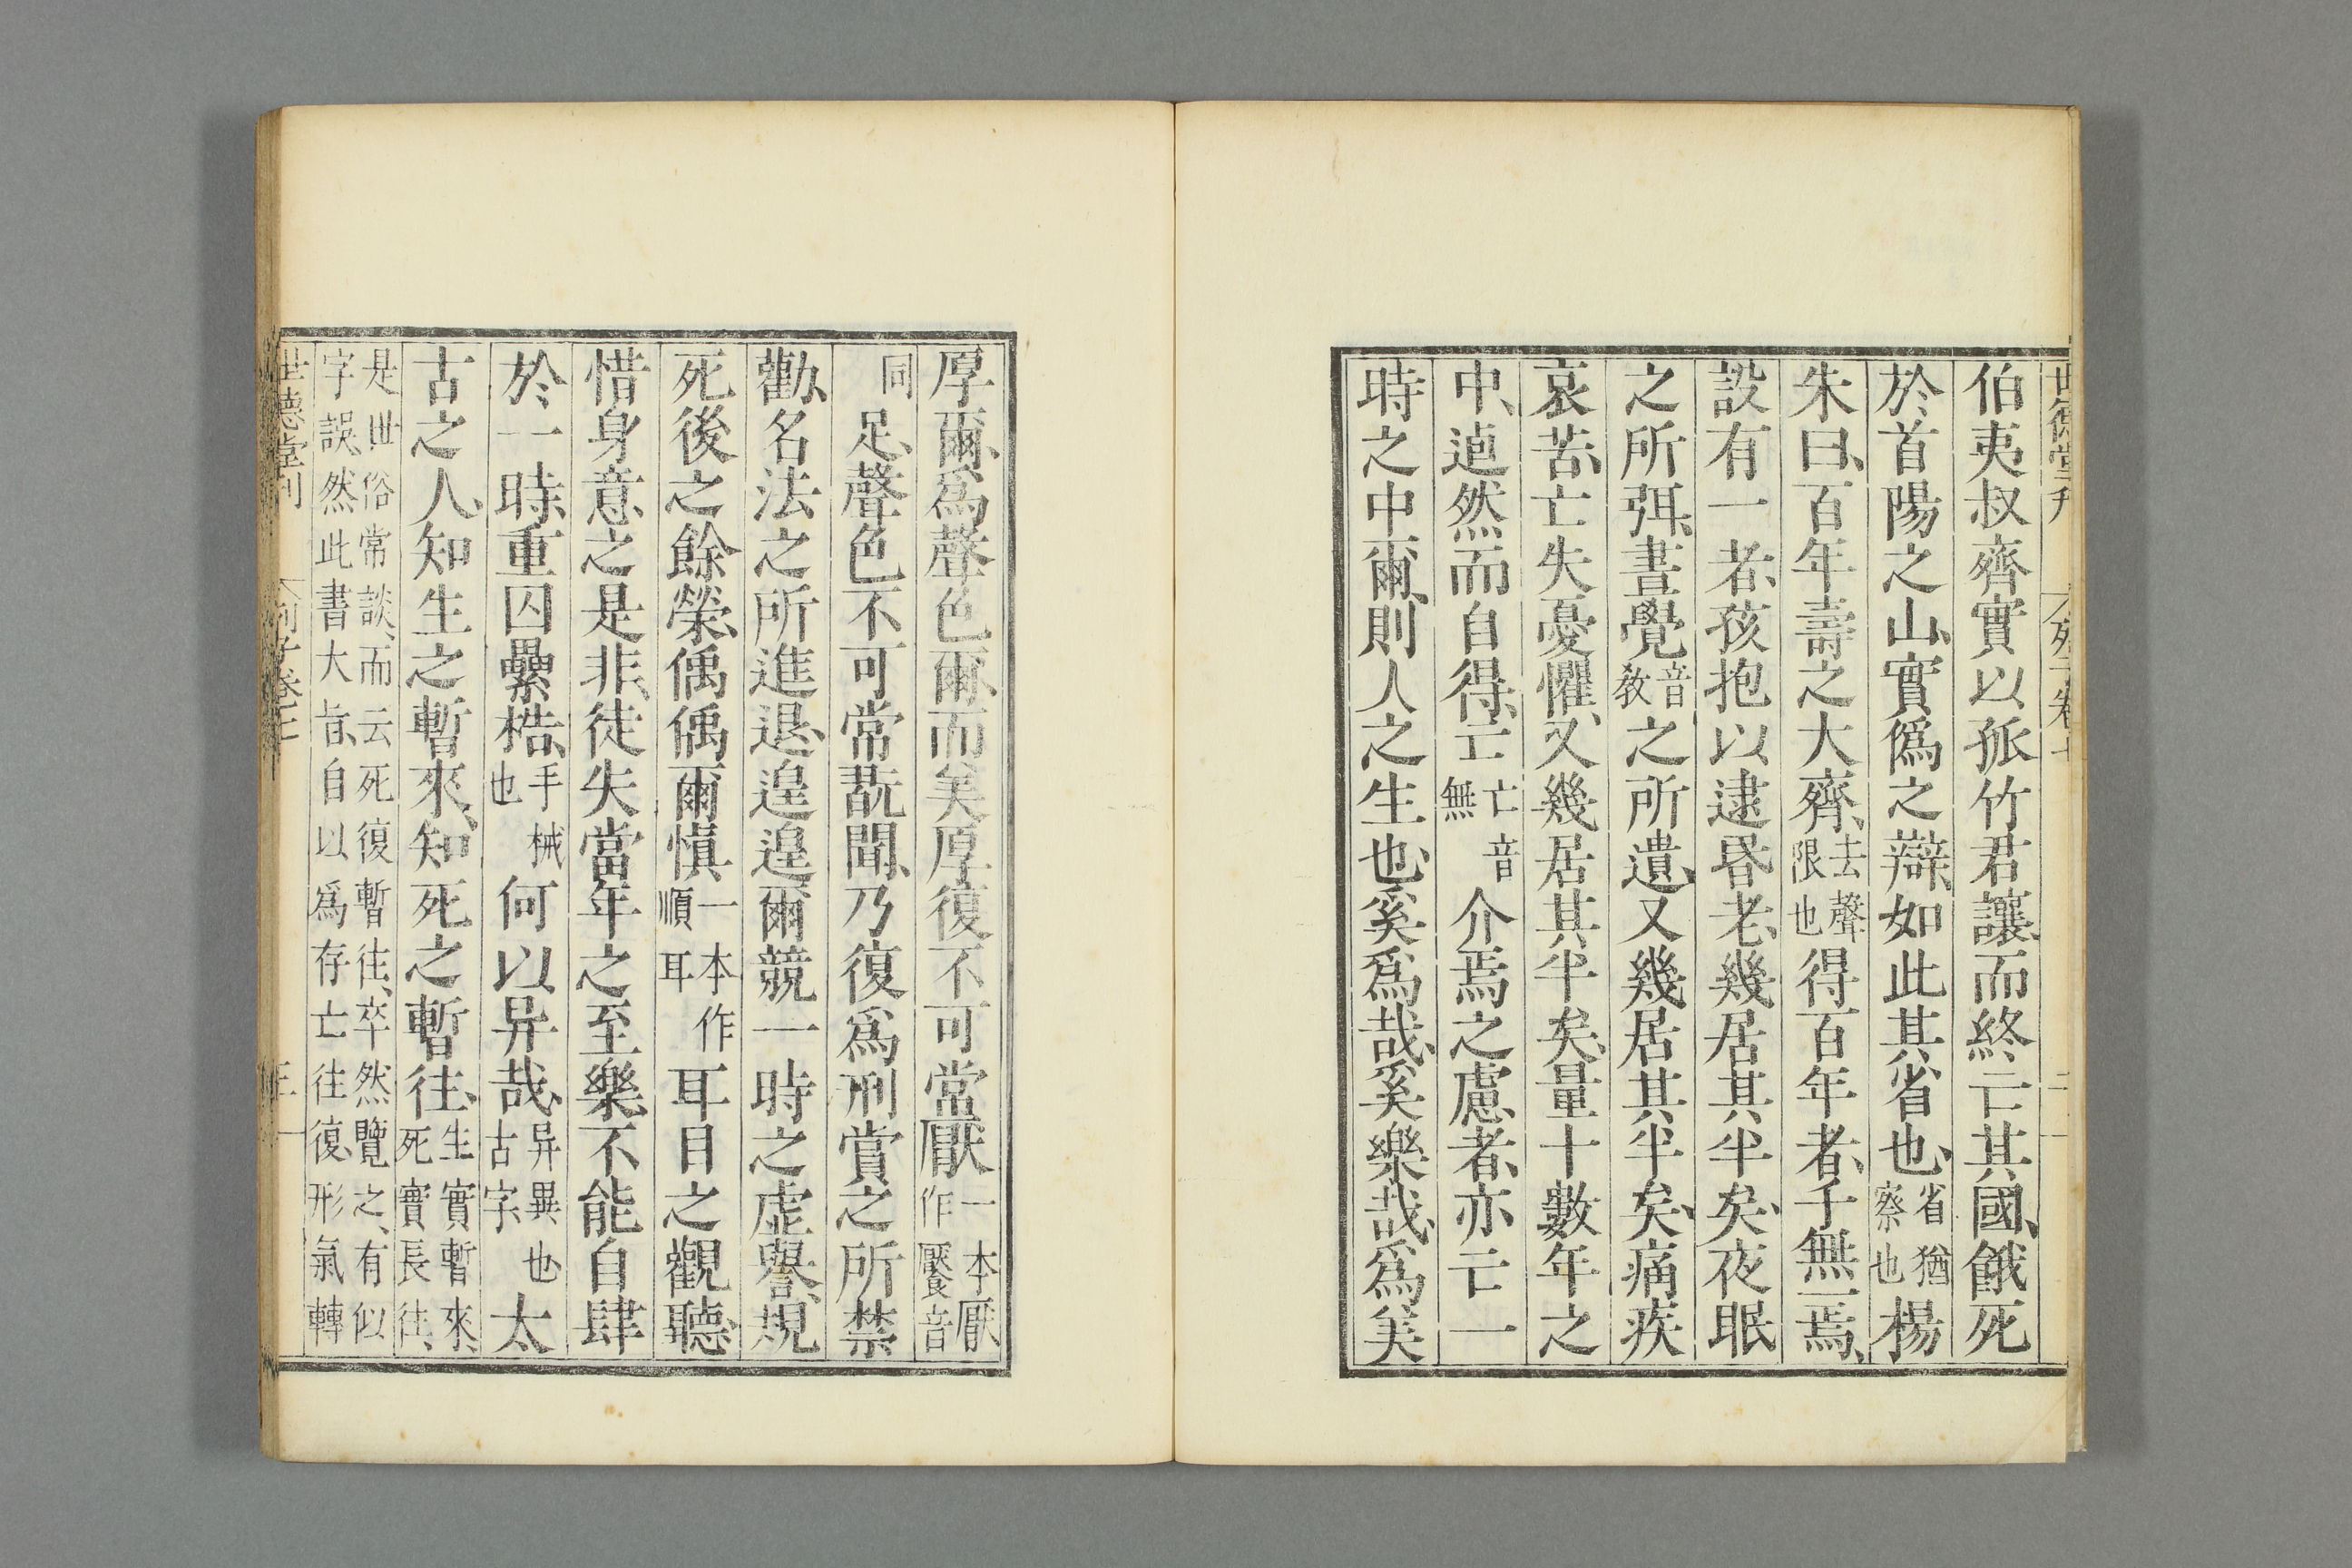 世德堂刊 列子卷七
伯夷叔齊實以孤竹君讓、而終亡其國、餓死
於首陽之山、實僞之辯、如此其省也、省猶察也楊
朱曰、百年壽之大齊、去聲限也得百年者、千無一焉、
設有一者、孩抱以逮昬老、幾居其半矣、夜眠
之所弭、晝覺音敎之所遺、又幾居其半矣、痛疾
哀苦、亡失憂懼、又幾居其半矣、量十數年之
中、逌然而自得、亡亡音無介焉之慮者、亦亡一
時之中爾、則人之生也、奚爲哉、奚樂哉、爲美
厚爾、爲聲色爾、而美厚復不可常厭一本厭作饜音
同足、聲色不可常翫聞、乃復爲刑賞之所禁
勸、名法之所進退、遑遑爾競一時之虛譽、規
死後之餘榮、偊偊爾愼一本作順耳耳目之觀聽、
惜身意之是非、徒失當年之至樂、不能自肆
於一時、重囚纍梏、手械也何以异哉、异異也古字太
古之人、知生之暫來、知死之暫往、生實暫來、死實長往、
是世俗常談、而云死復暫往、卒然覽之、有似
字誤、然此書大旨、自以爲存亡往復、形氣轉
世德堂刊 列子卷七